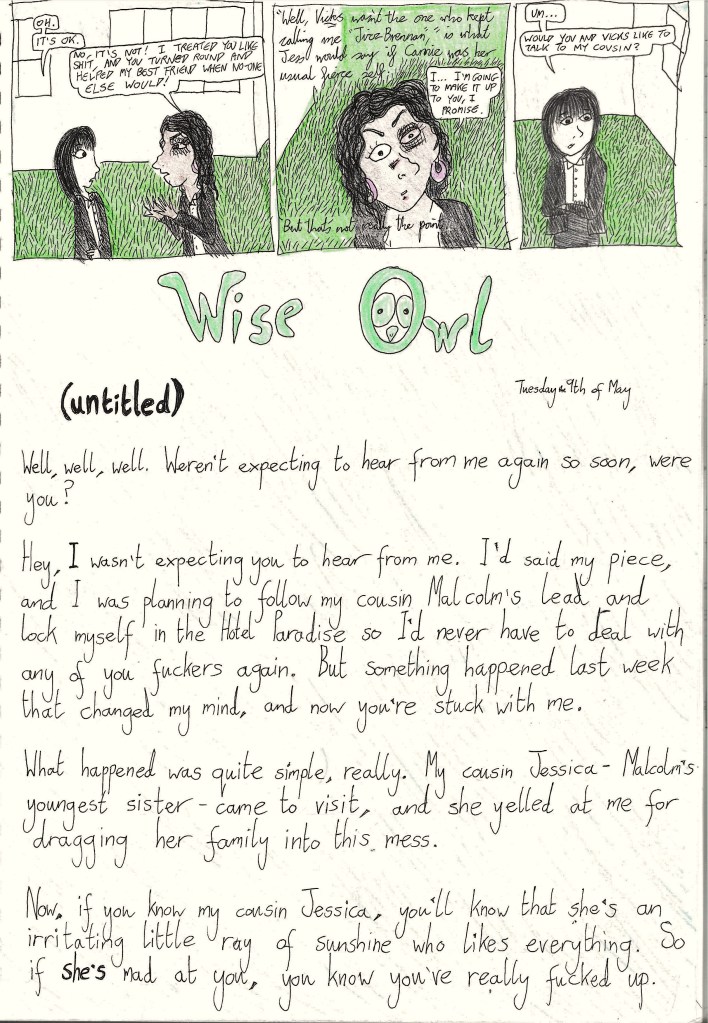 OH.
IT'S OK.
NO, IT'S NOT! I TREATED YOU LIKE
SHIT, AND YOU TURNED ROUND AND
HELPED MY BEST FRIEND WHEN NO-ONE
ELSE WOULD!
"Well, Vicks wasn't the one who kept
calling me 'Jizz-Brennan,'" is what
Jess would say if Carnie was her
usual fierce self.
I... I'M GOING
TO MAKE IT UP
TO YOU, I
PROMISE.
But that's not really the point.
UM...
WOULD YOU AND VICKS LIKE TO
TALK TO MY COUSIN?
Wise Owl
(untitled)
Tuesday the 9th of May
Well, well, well. Weren't expecting to hear from me again so soon, were
you?
Hey, I wasn't expecting you to hear from me. I'd said my piece,
and I was planning to follow my cousin Malcolm's lead and
lock myself in the Hotel Paradise so I'd never have to deal with
any of you fuckers again. But something happened last week
that changed my mind, and now you're stuck with me.
What happened was quite simple, really. My cousin Jessica - Malcolm's
youngest sister - came to visit, and she yelled at me for
dragging her family into this mess.
Now, if you know my cousin Jessica, you'll know that she's an
irritating little ray of sunshine who likes everything. So
if she's mad at you, you know you've really fucked up.